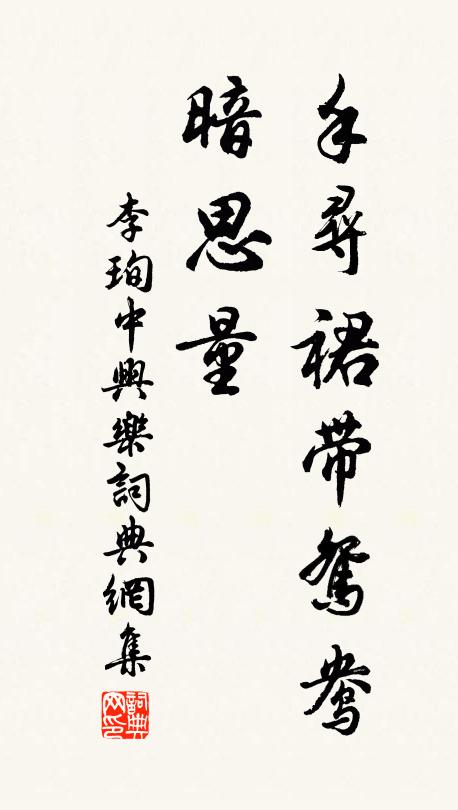 手尋裙帶鴛鴦
暗思量
李珣中興樂詞典網集
詞典網印